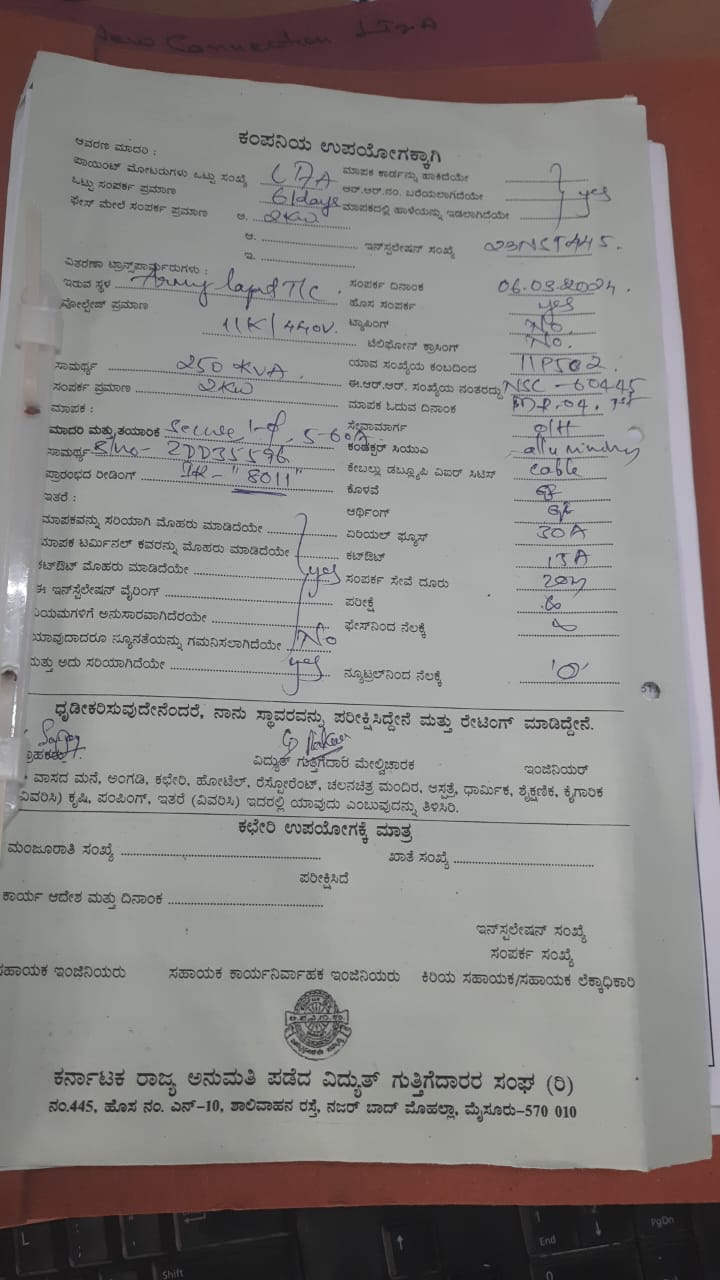 New Connection
ಕಂಪನಿಯ ಉಪಯೋಗಕ್ಕಾಗಿ
ಆವರಣ ಮಾದರಿ :
ಮಾಪಕ ಕಾರ್ಡನ್ನು ಹಾಕಿದೆಯೇ
ಪಾಯಿಂಟ್ ಮೋಟರುಗಳು ಒಟ್ಟು ಸಂಖ್ಯೆ
ಆರ್.ಆರ್.ನಂ. ಬರೆಯಲಾಗಿದೆಯೇ yes
ಒಟ್ಟು ಸಂಪರ್ಕ ಪ್ರಮಾಣ 61days
ಮಾಪಕದಲ್ಲಿ ಹಾಳೆಯನ್ನು ಇಡಲಾಗಿದೆಯೇ
ಫೇಸ್ ಮೇಲೆ ಸಂಪರ್ಕ ಪ್ರಮಾಣ ಅ. 2KW
ಆ. ಇನ್‌ಸ್ಟಲೇಷನ್ ಸಂಖ್ಯೆ
ಇ.
ವಿತರಣಾ ಟ್ರಾನ್ಸ್‌ಫಾರ್ಮರುಗಳು :
ಇರುವ ಸ್ಥಳ T/C
ಸಂಪರ್ಕ ದಿನಾಂಕ 06.03.2024.
ವೋಲ್ಟೇಜ್ ಪ್ರಮಾಣ 11K/440V.
ಹೊಸ ಸಂಪರ್ಕ yes
ಟ್ಯಾಪಿಂಗ್ No.
ಟೆಲಿಫೋನ್ ಕ್ರಾಸಿಂಗ್ No.
ಸಾಮರ್ಥ್ಯ 250 KVA.
ಯಾವ ಸಂಖ್ಯೆಯ ಕಂಬದಿಂದ
ಸಂಪರ್ಕ ಪ್ರಮಾಣ 2KW
ಈ.ಆರ್.ಆರ್. ಸಂಖ್ಯೆಯ ನಂತರದ್ದು NSC - 60445
ಮಾಪಕ :
ಮಾಪಕ ಓದುವ ದಿನಾಂಕ
ಮಾದರಿ ಮತ್ತು ತಯಾರಿಕ Secure 5-60A
ಸೇವಾಮಾರ್ಗ O/H
ಸಾಮರ್ಥ್ಯ S/No- 2DD35596
ಕಂಡಕ್ಟರ್ ಸಿಯುಎ
ಪ್ರಾರಂಭದ ರೀಡಿಂಗ್ IR- "8011"
ಕೇಬಲ್ಲು ಡಬ್ಲ್ಯೂಪಿ ವಿಐರ್ ಸಿಟಿಸ್ cable
ಕೊಳವೆ
ಇತರೆ :
ಆರ್ಥಿಂಗ್
ಮಾಪಕವನ್ನು ಸರಿಯಾಗಿ ಮೊಹರು ಮಾಡಿದೆಯೇ
ಏರಿಯಲ್ ಫ್ಯೂಸ್ 30A
ಮಾಪಕ ಟರ್ಮಿನಲ್ ಕವರನ್ನು ಮೊಹರು ಮಾಡಿದೆಯೇ
ಕಟ್‌ಔಟ್ 15A
ಕಟ್‌ಔಟ್ ಮೊಹರು ಮಾಡಿದೆಯೇ yes
ಸಂಪರ್ಕ ಸೇವೆ ದೂರು 20m
ಈ ಇನ್‌ಸ್ಟಲೇಷನ್ ವೈರಿಂಗ್
ಪರೀಕ್ಷೆ
ನಿಯಮಗಳಿಗೆ ಅನುಸಾರವಾಗಿದೆರಯೇ
ಫೇಸ್‌ನಿಂದ ನೆಲಕ್ಕೆ
ಯಾವುದಾದರೂ ನ್ಯೂನತೆಯನ್ನು ಗಮನಿಸಲಾಗಿದೆಯೇ No
ಮತ್ತು ಅದು ಸರಿಯಾಗಿದೆಯೇ yes
ನ್ಯೂಟ್ರಲ್‌ನಿಂದ ನೆಲಕ್ಕೆ '0'
ಧೃಡೀಕರಿಸುವುದೇನೆಂದರೆ, ನಾನು ಸ್ಥಾವರವನ್ನು ಪರೀಕ್ಷಿಸಿದ್ದೇನೆ ಮತ್ತು ರೇಟಿಂಗ್ ಮಾಡಿದ್ದೇನೆ.
ಗ್ರಾಹಕರು ವಿದ್ಯುತ್ ಗುತ್ತಿಗೆದಾರ ಮೇಲ್ವಿಚಾರಕ ಇಂಜಿನಿಯರ್
ವಾಸದ ಮನೆ, ಅಂಗಡಿ, ಕಛೇರಿ, ಹೋಟೆಲ್, ರೆಸ್ಟೋರೆಂಟ್, ಚಲನಚಿತ್ರ ಮಂದಿರ, ಆಸ್ಪತ್ರೆ, ಧಾರ್ಮಿಕ, ಶೈಕ್ಷಣಿಕ, ಕೈಗಾರಿಕ
(ವಿವರಿಸಿ) ಕೃಷಿ, ಪಂಪಿಂಗ್, ಇತರೆ (ವಿವರಿಸಿ) ಇದರಲ್ಲಿ ಯಾವುದು ಎಂಬುವುದನ್ನು ತಿಳಿಸಿರಿ.
ಕಛೇರಿ ಉಪಯೋಗಕ್ಕೆ ಮಾತ್ರ
ಮಂಜೂರಾತಿ ಸಂಖ್ಯೆ ಖಾತೆ ಸಂಖ್ಯೆ
ಪರೀಕ್ಷಿಸಿದೆ
ಕಾರ್ಯ ಆದೇಶ ಮತ್ತು ದಿನಾಂಕ
ಇನ್‌ಸ್ಟಲೇಷನ್ ಸಂಖ್ಯೆ
ಸಂಪರ್ಕ ಸಂಖ್ಯೆ
ಸಹಾಯಕ ಇಂಜಿನಿಯರು ಸಹಾಯಕ ಕಾರ್ಯನಿರ್ವಾಹಕ ಇಂಜಿನಿಯರು ಕಿರಿಯ ಸಹಾಯಕ/ಸಹಾಯಕ ಲೆಕ್ಕಾಧಿಕಾರಿ
ಕರ್ನಾಟಕ ರಾಜ್ಯ ಅನುಮತಿ ಪಡೆದ ವಿದ್ಯುತ್ ಗುತ್ತಿಗೆದಾರರ ಸಂಘ (ರಿ)
ನಂ.445, ಹೊಸ ನಂ. ಎನ್-10, ಶಾಲಿವಾಹನ ರಸ್ತೆ, ನಜರ್ ಬಾದ್ ಮೊಹಲ್ಲಾ, ಮೈಸೂರು-570 010
L
Shift
End
PgDn
0